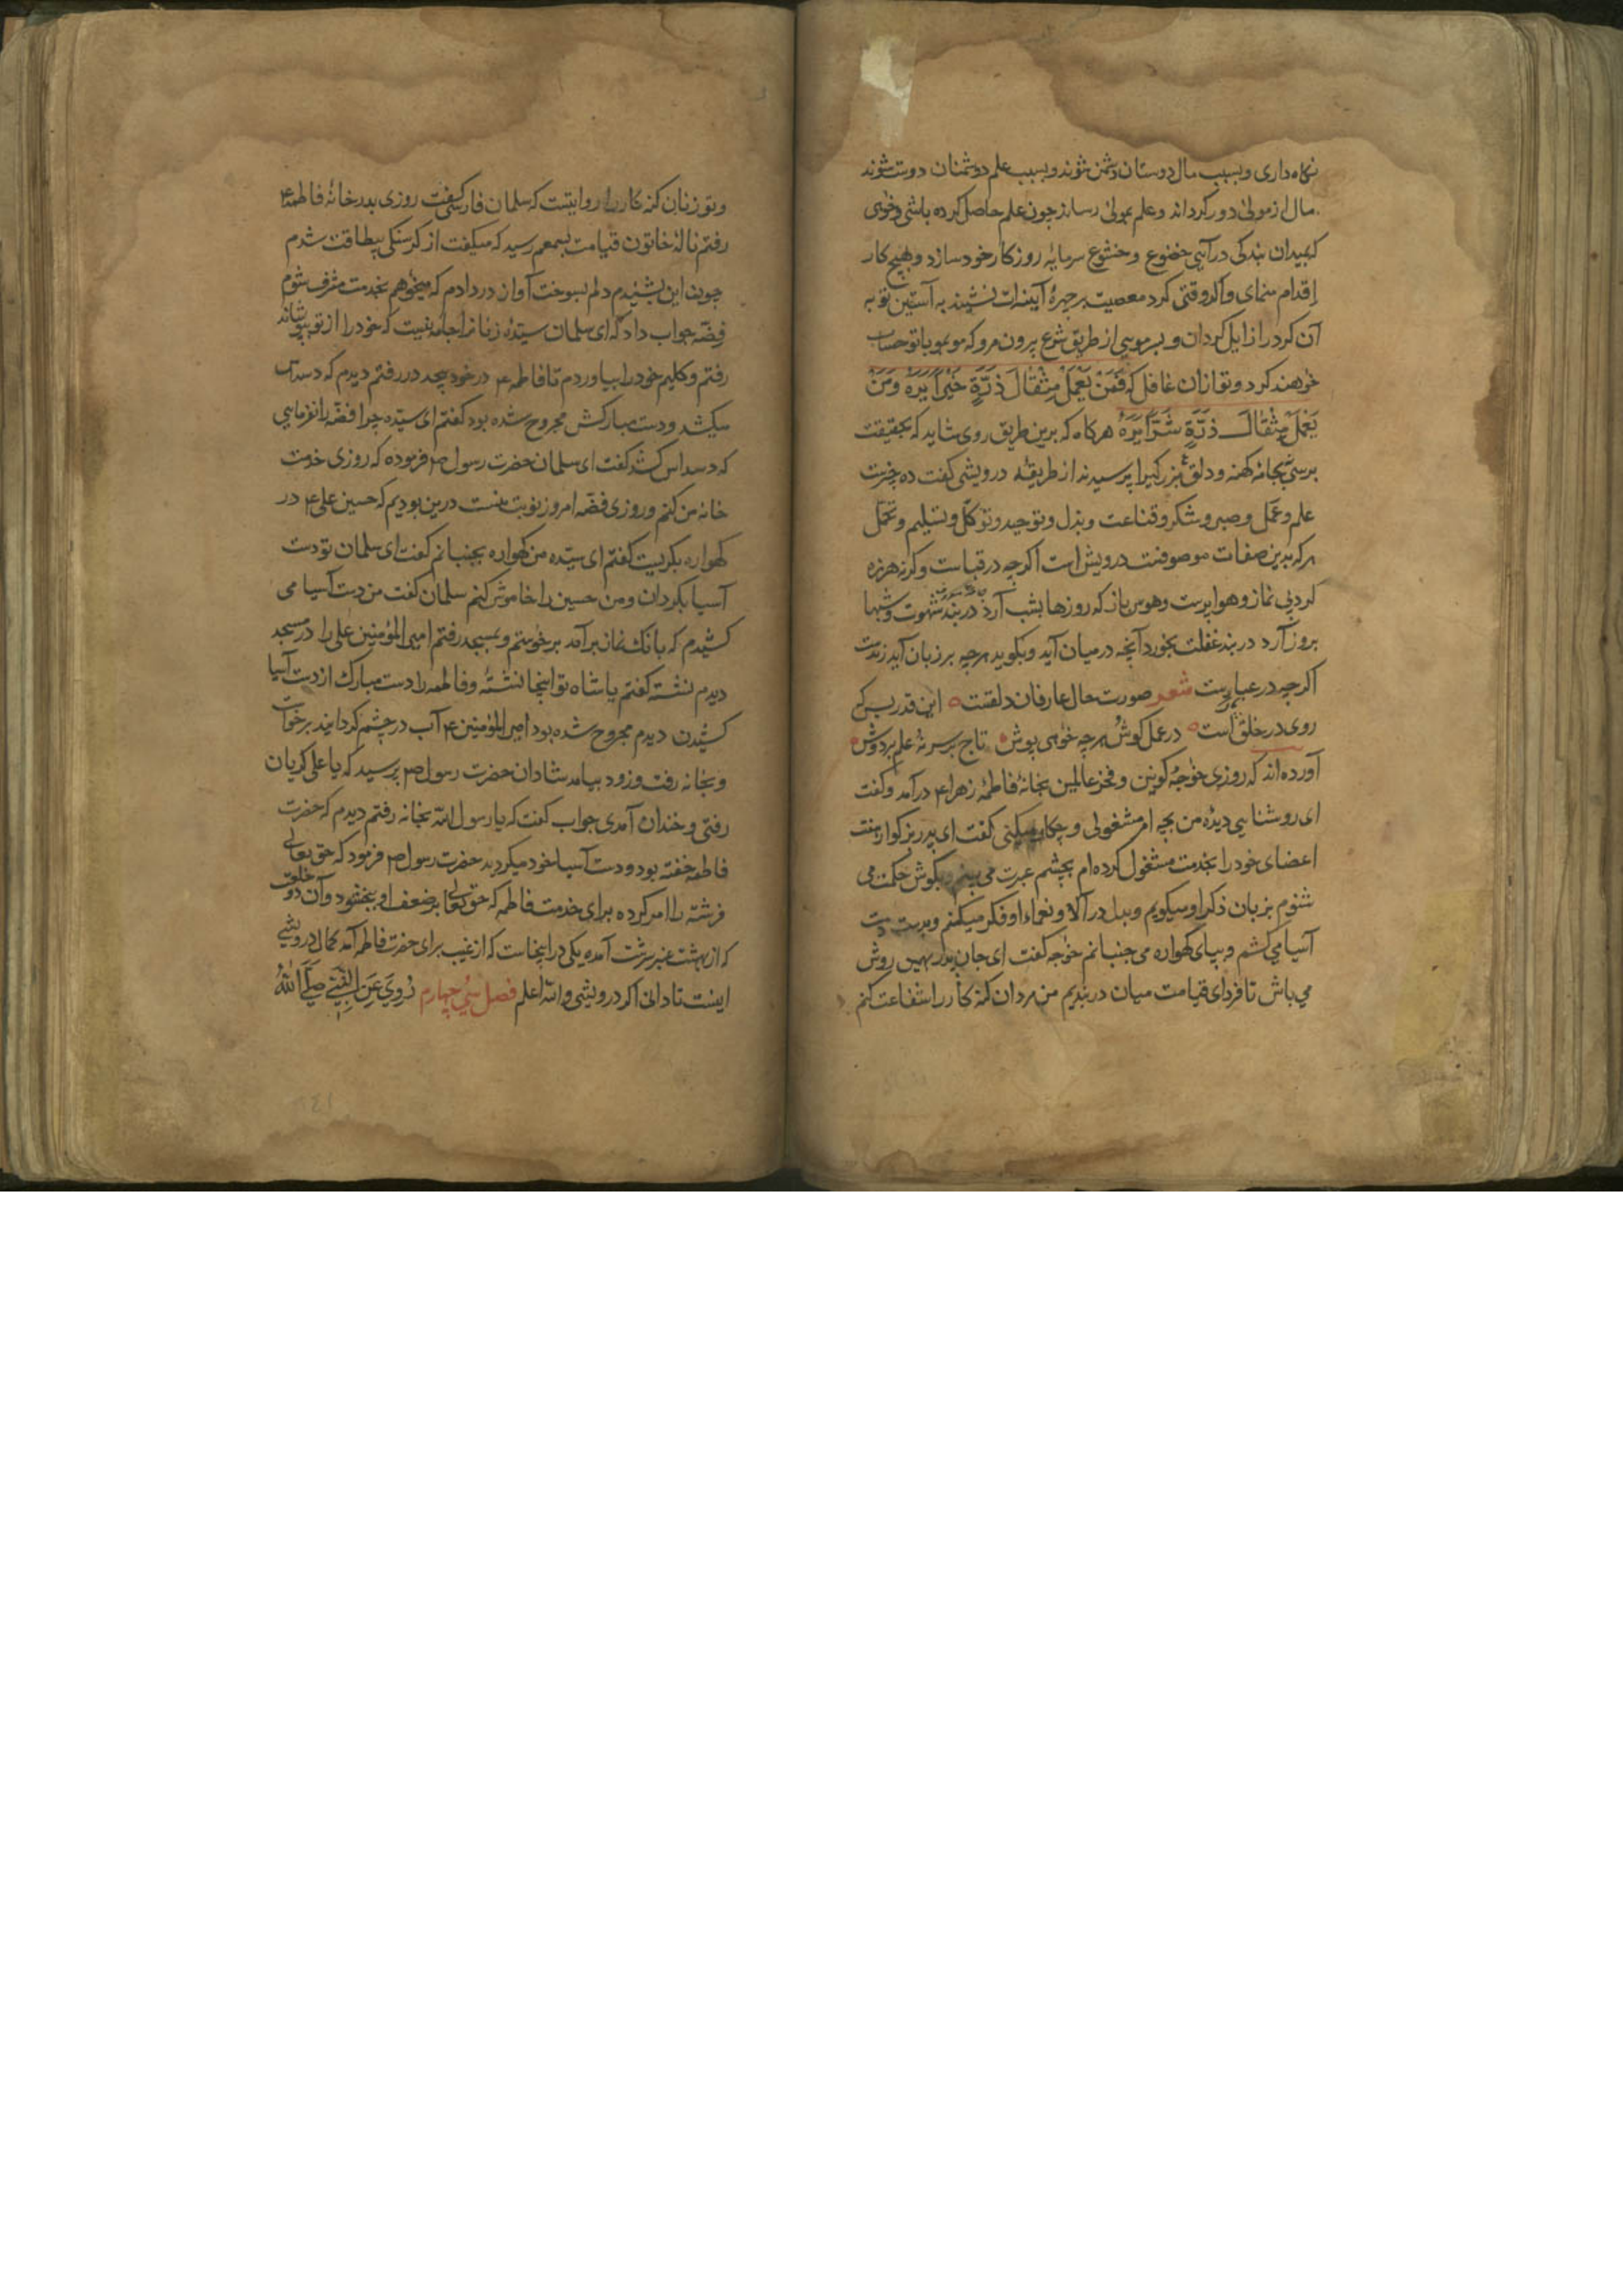 نکاه داری و بسبب مال دوستان دشمن شوند و بسبب علم دشمنان دوست شوند
مال از مولی دور کرداند و علم بمولی رساند چون علم حاصل کرده باشی و خواهی
که بمیدان بندکی در آیی خضوع و خشوع سرمایه روزکار خود سازد و بهیچ کار
اقدام منمای و اکر وقتی کرد معصیت بر چهرهٔ آیینه ات نشیند به آستین توبه
آن کرد را زایل کردان و بسر مویی از طریق شرع بیرون مرو که مو بمو با تو حساب
خواهند کرد و تو از ان غافل که فَمَنْ یَعْمَلْ مِثْقٰالَ ذَرَّةٍ خَیْراً یَرَهُ وَمَنْ
یَعْمَلْ مِثْقٰالَ ذَرَّةٍ شَرّاً یَرَهُ هرکاه که برین طریق روی شاید که بحقیقت
برسی بجامه کهنه و دلق بزرکیرا پرسیدند از طریقه درویشی کفت ده چیزست
علم و عمل و صبر و شکر و قناعت و بذل و توحید و توکل و تسلیم و تحمل
هر که بدین صفات موصوفست درویش است اکرچه در قباست و کرنه هرزه
کرد بی نماز و هوا پرست و هوس باز که روزها بشب آرد در بند شهوت و شبها
بروز آرد در بند غفلت بخورد آنچه در میان آید و بکوید هرچه بر زبان آید رندست
اکرچه در عباست شعر صورت حال عارفان دلقست این قدر بس که
روی در خلق است در عمل کوش هرچه خواهی پوش تاج بر سر نه علم بر دوش
آورده اند که روزی خواجه کونین و فخر عالمین بخانهٔ فاطمهٔ زهرا ع در آمد و کفت
ای روشنایی دیدهٔ من بچه امر مشغولی و چکار میکنی کفت ای پدر بزرکوار هفت
اعضای خود را بخدمت مشغول کرده ام بچشم عبرت می بینم و بکوش حکمت می
شنوم بزبان ذکر او میکویم و بدل در آلا و نعماء او فکر میکنم و بدست دست
آسیا می کشم و بپای کهواره می جنبانم خواجه کفت ای جان پدر بهمین روش
می باش تا فردای قیامت میان در بندیم من مردان کنه کار را شفاعت کنم
و تو زنان کنه کار را روایتست که سلمان فارسی کفت روزی بدر خانهٔ فاطمه ع
رفتم نالهٔ خاتون قیامت بسمعم رسید که میکفت از کرسنکی بیطاقت شدم
چون این بشنیدم دلم بسوخت آواز در دادم که میخواهم بخدمت مشرف شوم
فضه جواب داد که ای سلمان سیدهٔ زنانرا جامه نیست که خود را از تو بپوشاند
رفتم و کلیم خود را بیاوردم تا فاطمه ع در خود پیچد در رفتم دیدم که دسداس
میکشد و دست مبارکش مجروح شده بود کفتم ای سیده چرا فضه را نفرمایی
که دسداس کشد کفت ای سلمان حضرت رسول ص فرموده که روزی خدمت
خانه من کنم و روزی فضه امروز نوبت منست درین بودیم که حسین علی ع در
کهواره بکریست کفتم ای سیده من کهواره بجنبانم کفت ای سلمان تو دست
آسیا بکردان و من حسین را خاموش کنم سلمان کفت من دست آسیا می
کشیدم که بانک نماز برآمد برخواستم و بمسجد رفتم امیر المؤمنین علی را در مسجد
دیدم نشسته کفتم یا شاه تو اینجا نشسته و فاطمه را دست مبارک از دست آسیا
کشیدن دیدم مجروح شده بود امیر المؤمنین ع آب در چشم کردانید برخواست
و بخانه رفت و زود بیامد شادان حضرت رسول ص پرسید که یا علی کریان
رفتی و خندان آمدی جواب کفت که یا رسول الله بخانه رفتم دیدم که حضرت
فاطمه خفته بود و دست آسیا خود میکردید حضرت رسول ص فرمود که حق تعالی
فرشته را امر کرده برای خدمت فاطمه که حق تعالی بر ضعف او ببخشود و آن دو خلعت
که از بهشت عنبر سرشت آمده یکی در اینجاست که از غیب برای حضرت فاطمه آمد کمال درویشی
اینست تا دانی اکر درویشی والله اعلم فصل سی چهارم رُوِیَ عَنِ النَّبِیِّ صَلَّی اللهُ